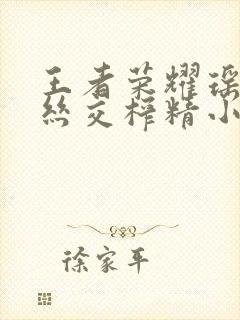 王者荣耀瑶
丝交榨精小
徐家平